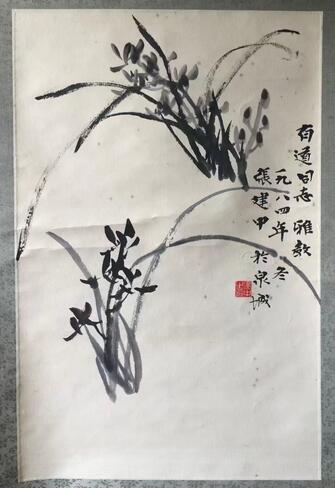 有道同志雅教
一九八四年冬
張建中於泉城